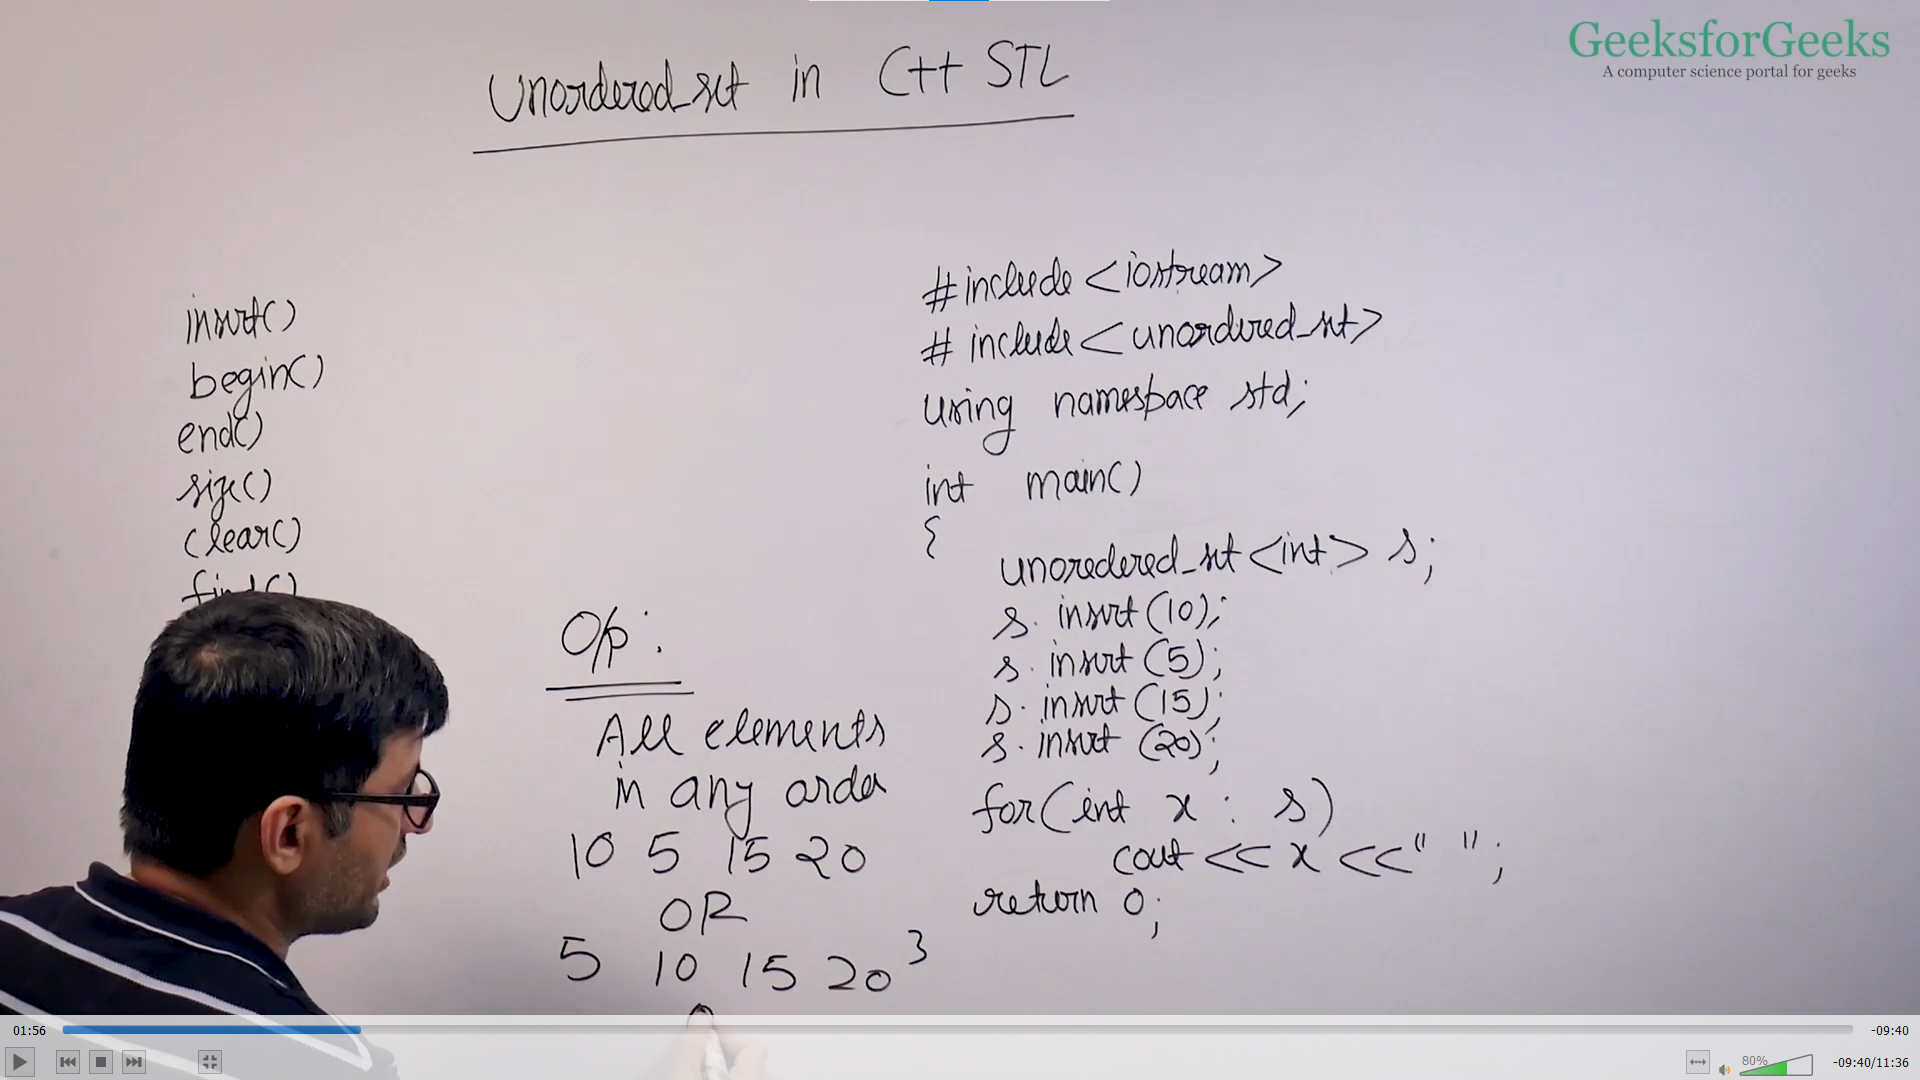 GeeksforGeeks
A computer science portal for geeks
Unordered_set in C++ STL
insert()
begin()
end()
size()
clear()
find()
O/p:
All elements
in any order
10 5 15 20
OR
5 10 15 20
#include <iostream>
# include <unordered_set>
using namespace std;
int main()
{
unoredered_set <int> s;
s. insert (10);
s. insert (5);
s. insert (15);
s. insert (20);
for (int x : s)
cout << x << " ";
return 0;
}
01:56
-09:40
80%
-09:40/11:36